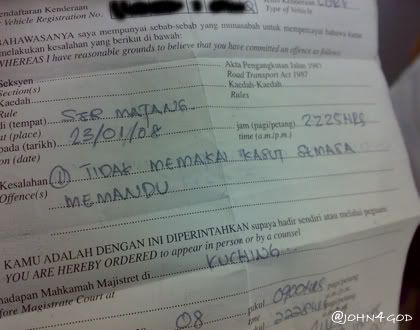 endaftaran Kenderaan
Vehicle Registration No.
Type of Vehicle
BAHAWASANYA saya mempunyai sebab-sebab yang munasabah untuk mempercayai bahawa
melakukan kesalahan yang berikut di bawah:
WHEREAS I have reasonable grounds to believe that you have committed an offence as follows:
Seksyen Akta Pengangkutan Jalan 1987
Section(s) Road Transport Act 1987
Kaedah Kaedah-Kaedah
Rule Rules
di (tempat) SER MATANG
at (place)
pada (tarikh) 23/01/08 jam (pagi/petang) 2225HRS
on (date) time (a.m./p.m.)
Kesalahan ① TIDAK MEMAKAI KASUT SEMASA
Offence(s) MEMANDU
KAMU ADALAH DENGAN INI DIPERINTAHKAN supaya hadir sendiri atau melalui peguam
YOU ARE HEREBY ORDERED to appear in person or by a counsel
hadapan Mahkamah Majistret di KUCHING
fore Magistrate Court at
08 pukul 0900HRS
@JOHN4GOD